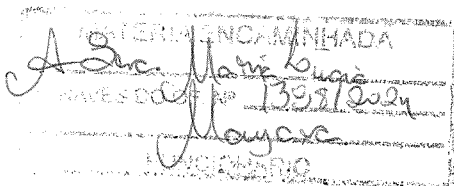 MATÉRIA ENCAMINHADA
A Sra. Maria Lucia
ATRAVÉS DO 1398/2024
Mayara
FUNCIONÁRIO